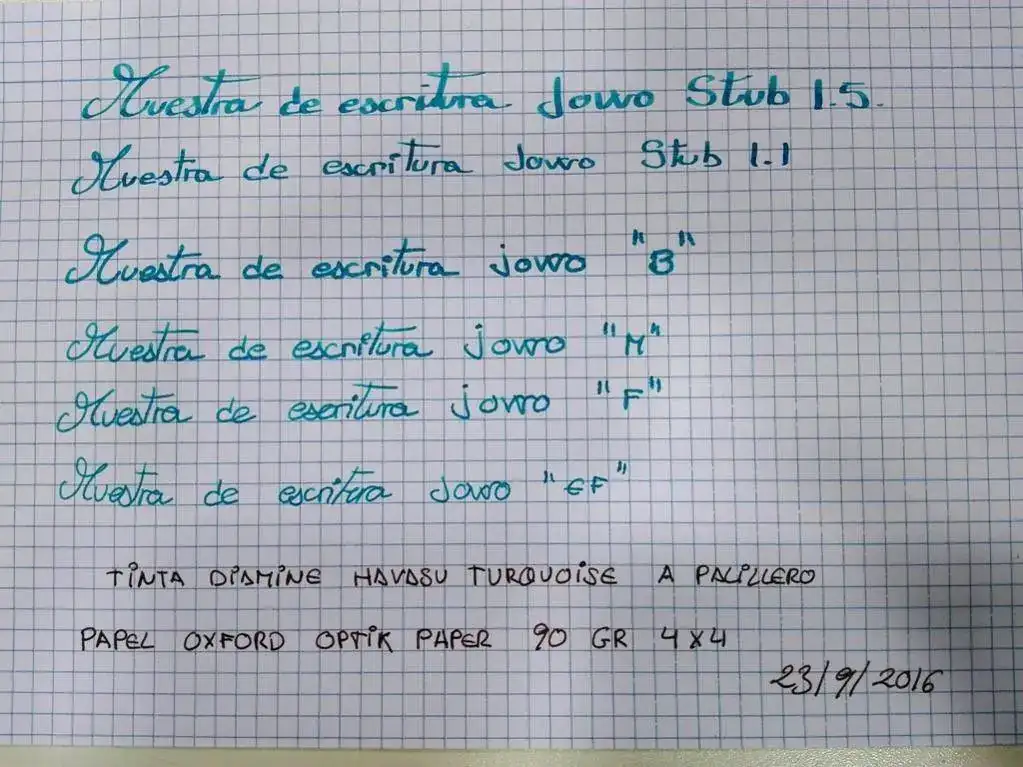 Muestra de escritura Jowo Stub 1.5.
Muestra de escritura Jowo Stub 1.1
Muestra de escritura jowo "B"
Muestra de escritura jowo "M"
Muestra de escritura jowo "F"
Muestra de escritura Jowo "EF"
TINTA DIAMINE HAVASU TURQUOISE A PALILLERO
PAPEL OXFORD OPTIK PAPER 90 GR 4x4
23/9/2016